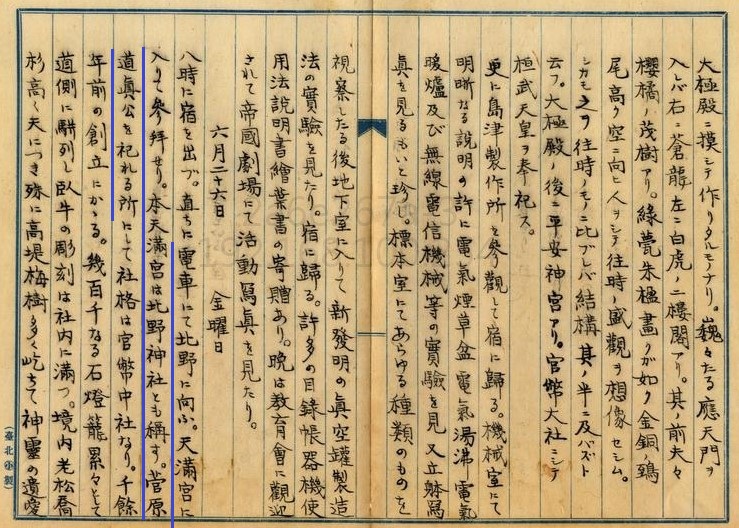 大極殿ニ摸シテ作リタルモノナリ。巍々タル應天門ヲ
入レバ右ニ蒼龍左ニ白虎ノ二樓閣アリ。其ノ前夫々
櫻橘ノ茂樹アリ。綠甍朱楹畫クガ如ク金銅ノ鵄
尾高ク空ニ向ヒ人ヲシテ往時ノ盛觀ヲ想像セシム。
シカモ之ヲ往時ノモノニ比ブレバ結構其ノ半ニ及バズト
云フ。大極殿ノ後ニ平安神宮アリ。官幣大社ニシテ
桓武天皇ヲ奉祀ス。
更に島津製作所を參觀して宿に歸る。機械室にて
明晰なる說明の許に電氣煙草盆電氣湯沸電氣
暖爐及び無線電信機械等の實驗を見又立躰寫
眞を見るもいと珍し。標本室にてあらゆる種類のものを
視察したる後地下室に入りて新發明の眞空罐製造
法の實驗を見たり。宿に歸る。許多の目錄帳器機使
用法說明書繪葉書の寄贈あり。晩は教育會に觀迎
されて帝國劇場にて活動寫眞を見たり。
六月二十六日 金曜日
八時に宿を出づ。直ちに電車にて北野に向ふ。天滿宮に
入りて參拜せり。本天滿宮は北野神社とも稱す。菅原
道眞公を祀れる所にして社格は官幣中社なり。千餘
年前の創立にかゝる。幾百千なる石燈籠累々として
道側に駢列し臥牛の彫刻は社內に滿つ。境內老松喬
杉高く天につき殊に高堤梅樹多く屹ちて神靈の遺愛
(臺北小製)